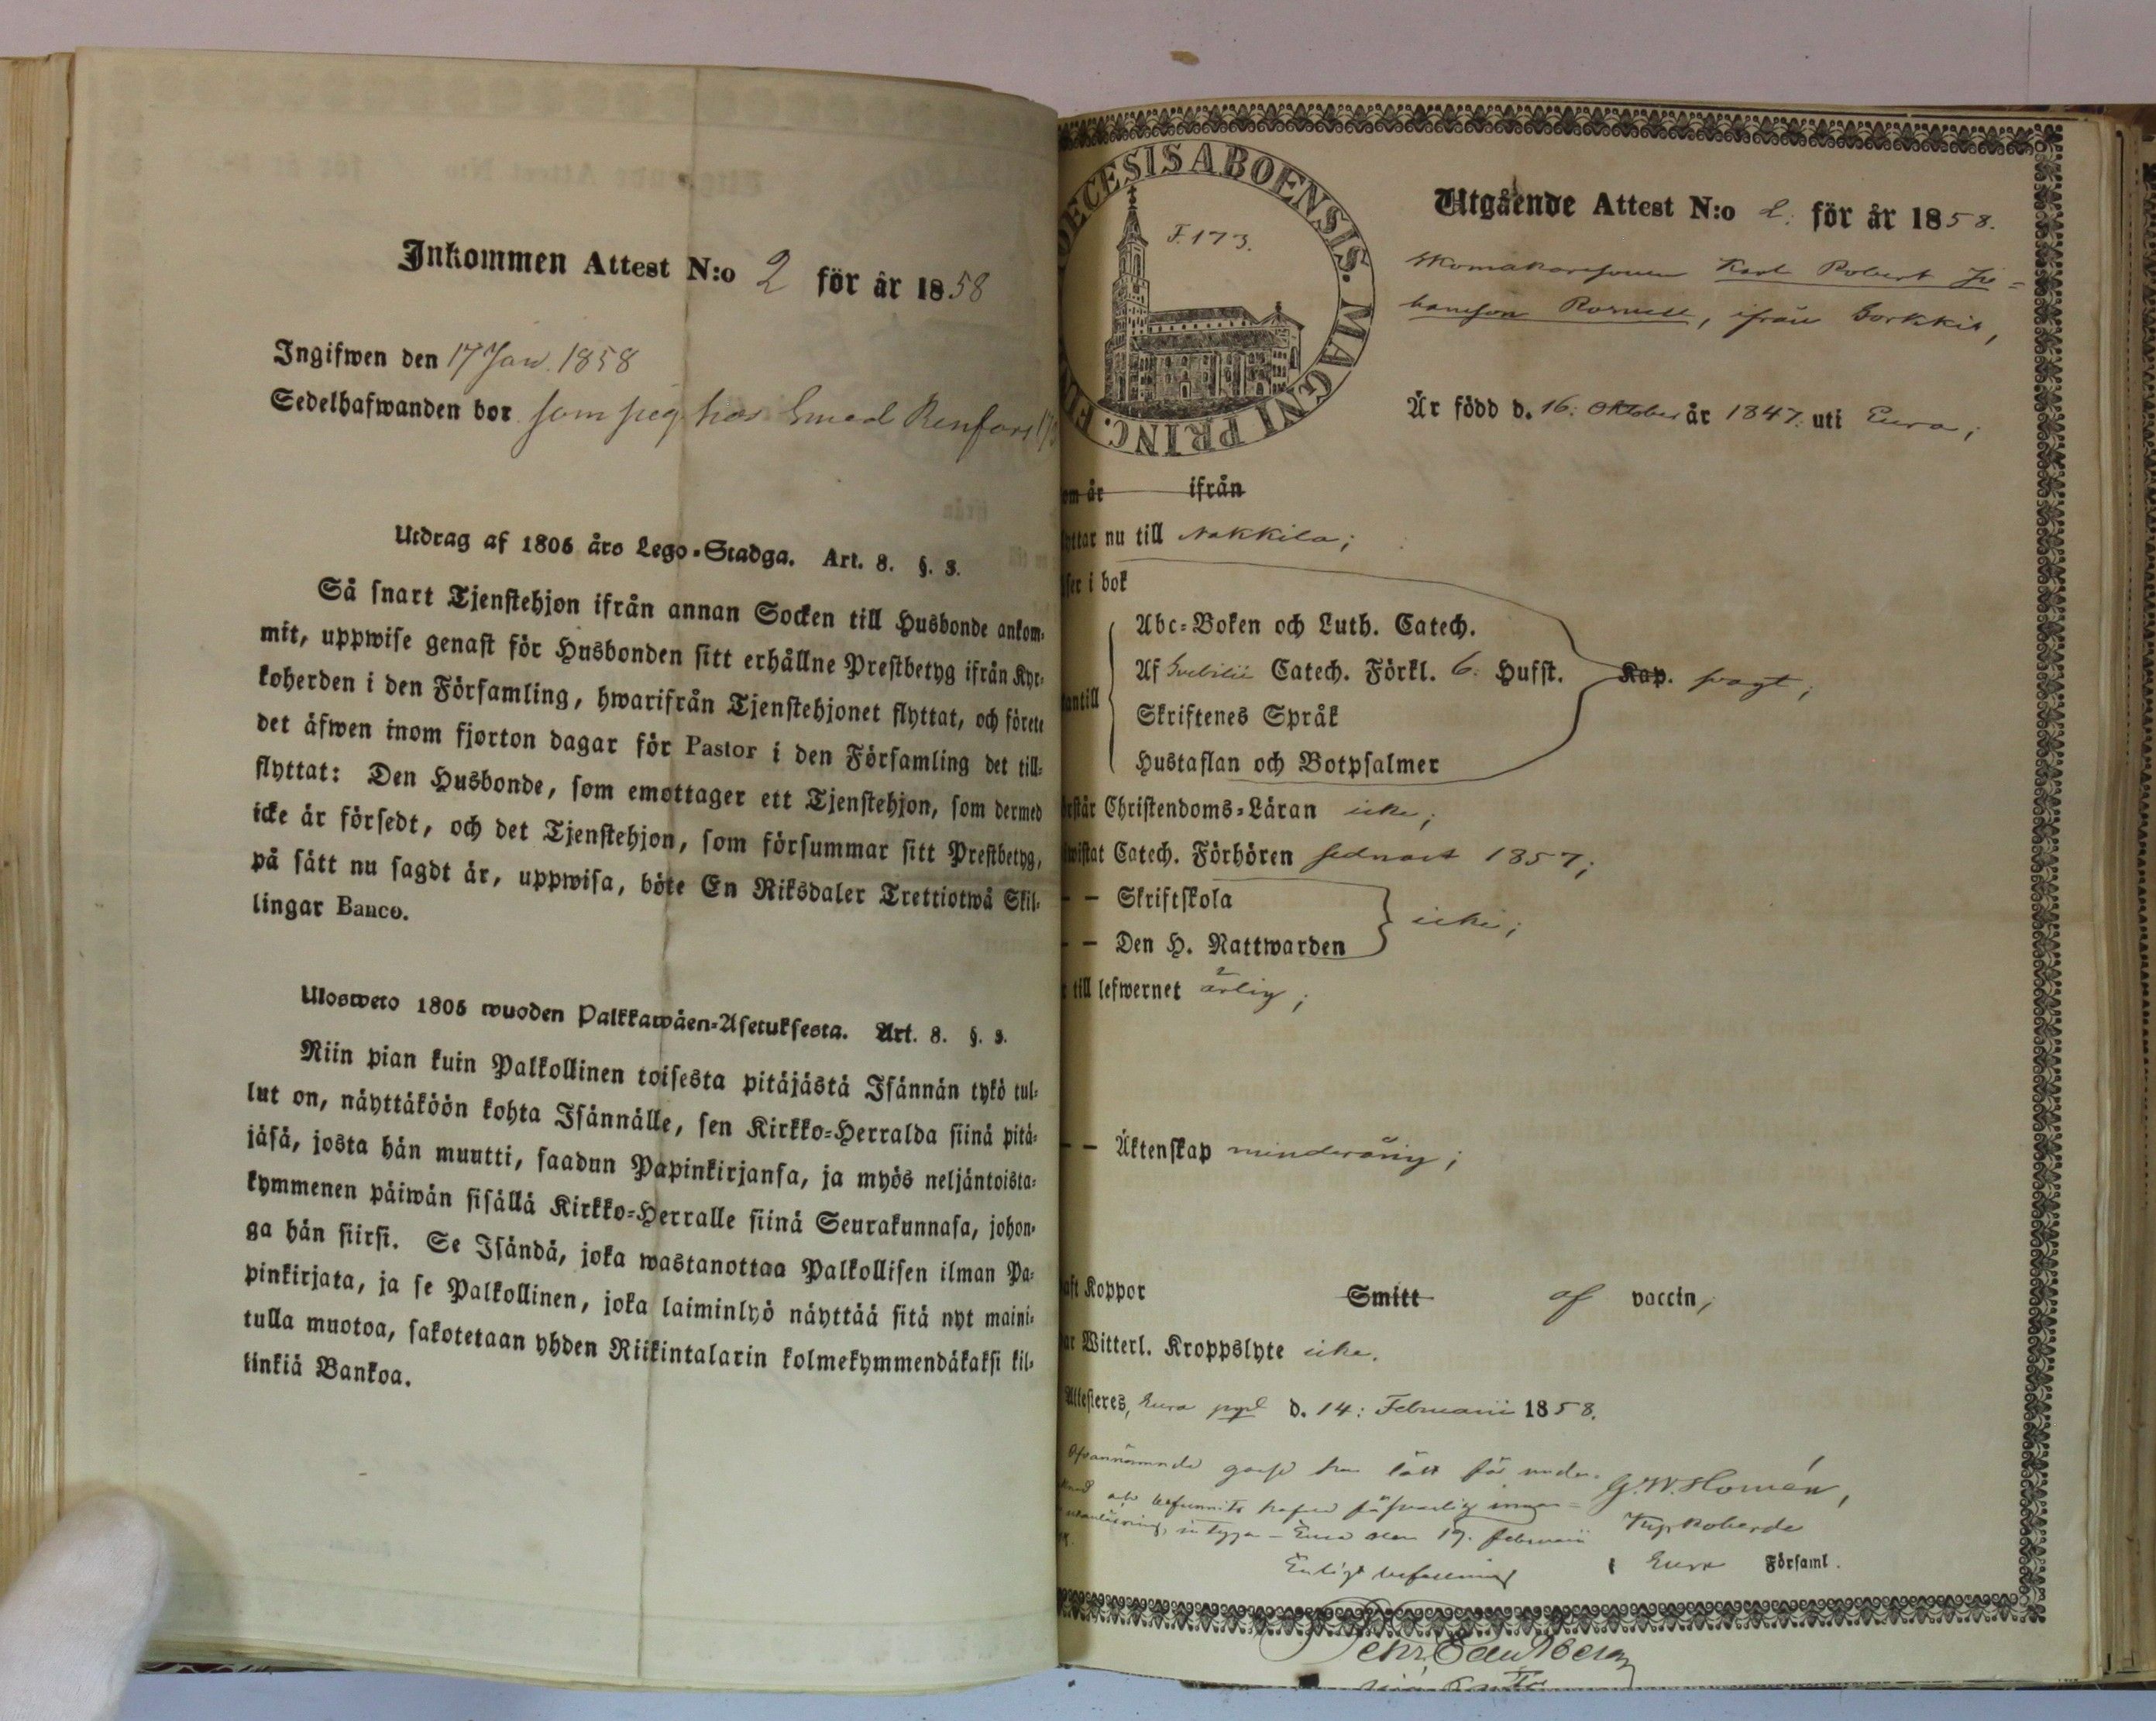 Inkommen Attest N:o 2 för år 1858
Ingifwen den 17 Jan. 1858
Sedelhafwanden bor som hos Smed Renfors
Utdrag af 1805 års Lego-Stadga. Art. 8. §. 3.
Så snart Tjenstehjon ifrån annan Socken till Husbonde ankom-
mit, uppwise genast för Husbonden sitt erhållne Prestbetyg ifrån Kyr-
koherden i den Församling, hwarifrån Tjenstehjonet flyttat, och förete
det äfwen inom fjorton dagar för Pastor i den Församling det till-
flyttat: Den Husbonde, som emottager ett Tjenstehjon, som dermed
icke är försedt, och det Tjenstehjon, som försummar sitt Prestbetyg,
på sätt nu sagdt är, uppwisa, böte En Riksdaler Trettiotwå Skil-
lingar Banco.
Ulosweto 1805 wuoden Palkkawäen-Asetuksesta. Art. 8. §. 3.
Niin pian kuin Palkollinen toisesta pitäjästä Isännän tykö tul-
lut on, näyttäköön kohta Isännälle, sen Kirkko-Herralda siinä pitä-
jäsä, josta hän muutti, saadun Papinkirjansa, ja myös neljäntoista-
kymmenen päiwän sisällä Kirkko-Herralle siinä Seurakunnasa, johon-
ga hän siirsi. Se Isändä, joka wastanottaa Palkollisen ilman Pa-
pinkirjata, ja se Palkollinen, joka laiminlyö näyttää sitä nyt maini-
tulla muotoa, sakotetaan yhden Riikintalarin kolmekymmendäkaksi kil-
linkiä Bankoa.
ECESIS ABOENSIS. MAGNI PRINC. FIN
F. 173.
Utgående Attest N:o 2: för år 1858.
Skomakaresonen Karl Robert Jo-
hansson Rornell, ifrån Sorkkis,
Är född d. 16: Oktober år 1847: uti Eura;
om år ifrån
yttar nu till Nakkila;
ser i bok
Abc-Boken och Luth. Catech.
Af Svebilii Catech. Förkl. 6: Hufst. Kap. svagt;
antill
Skriftenes Språk
Hustaflan och Botpsalmer
rstår Christendoms-Läran icke;
wistat Catech. Förhören sednast 1857;
— Skriftskola
— Den H. Nattwarden icke;
till lefwernet ärlig;
— Äktenskap minderårig;
aft Koppor Smitt af vaccin,
ar Witterl. Kroppslyte icke.
Attesteres, Eura d. 14: Februarii 1858.
Ofvannämnde gosse har låtit
G. W. Homén,
Kyrkoherde
i Eura Församl.
intyga – Eura den 19. Februarii
Enligt befallning
Pehr